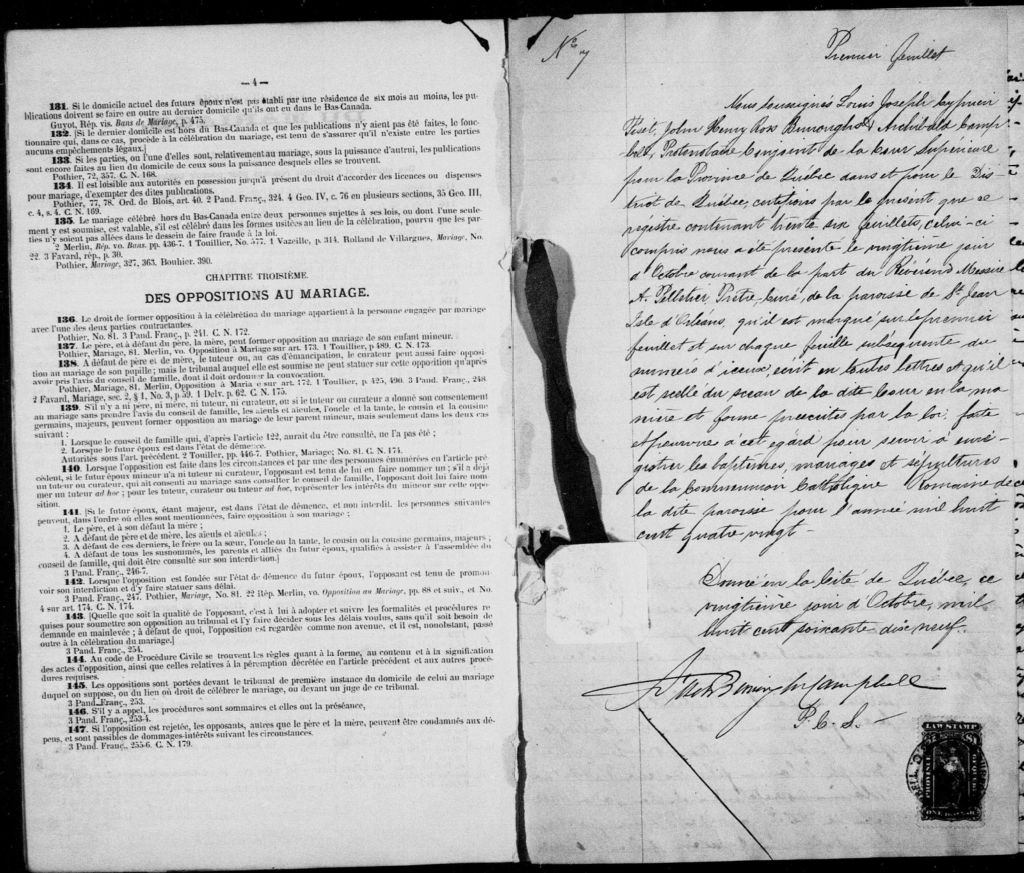 — 4 —
131. Si le domicile actuel des futurs époux n'est pas établi par une résidence de six mois au moins, les pu-
blications doivent se faire en outre au dernier domicile qu'ils ont eu dans le Bas-Canada.
Guyot, Rép. vis. Bans de Mariage, p. 475.
132. [Si le dernier domicile est hors du Bas-Canada et que les publications n'y aient pas été faites, le fonc-
tionnaire qui, dans ce cas, procède à la célébration du mariage, est tenu de s'assurer qu'il n'existe entre les parties
aucuns empêchements légaux.]
133. Si les parties, ou l'une d'elles sont, relativement au mariage, sous la puissance d'autrui, les publications
sont encore faites au lieu du domicile de ceux sous la puissance desquels elles se trouvent.
Pothier, 72, 357. C. N. 168.
134. Il est loisible aux autorités en possession jusqu'à présent du droit d'accorder des licences ou dispenses
pour mariage, d'exempter des dites publications.
Pothier, 77, 78. Ord. de Blois, art. 40. 2 Pand. Franç., 324. 4 Geo. IV, c. 76 en plusieurs sections, 35 Geo. III,
c. 4, s. 4. C. N. 169.
135. Le mariage célébré hors du Bas-Canada entre deux personnes sujettes à ses lois, ou dont l'une seule-
ment y est soumise, est valable, s'il est célébré dans les formes usitées au lieu de la célébration, pourvu que les par-
ties n'y soient pas allées dans le dessein de faire fraude à la loi.
2 Merlin, Rép. vo. Bans. pp. 436-7. 1 Touillier, No. 577. 1 Vazeille, p. 314. Rolland de Villargues, Mariage, No.
22. 3 Favard, rép., p. 30.
Pothier, Mariage, 327, 363. Bouhier. 390.
CHAPITRE TROISIÈME.
DES OPPOSITIONS AU MARIAGE.
136. Le droit de former opposition à la célébration du mariage appartient à la personne engagée par mariage
avec l'une des deux parties contractantes.
Pothier, No. 81. 3 Pand. Franç., p. 241. C. N. 172.
137. Le père, et à défaut du père, la mère, peut former opposition au mariage de son enfant mineur.
Pothier, Mariage, 81. Merlin, vo. Opposition à Mariage sur art. 173. 1 Touillier, p 489. C. N. 173.
138. A défaut de père et de mère, le tuteur ou, au cas d'émancipation, le curateur peut aussi faire opposi-
tion au mariage de son pupille; mais le tribunal auquel elle est soumise ne peut statuer sur cette opposition qu'après
avoir pris l'avis du conseil de famille, dont il doit ordonner la convocation.
Pothier, Mariage, 81. Merlin, Opposition à Maria e sur art. 172. 1 Touillier, p 425, 490. 3 Pand. Franç., 248.
2 Favard, Mariage, sec. 2, § 1, No. 3, p 59. 1 Delv. p. 62. C. N. 175.
139. S'il n'y a ni père, ni mère, ni tuteur, ni curateur, ou si le tuteur ou curateur a donné son consentement
au mariage sans prendre l'avis du conseil de famille, les aïeuls et aïeules, l'oncle et la tante, le cousin et la cousine
germains, majeurs, peuvent former opposition au mariage de leur parent mineur, mais seulement dans les deux cas
suivant :
1. Lorsque le conseil de famille qui, d'après l'article 122, aurait du être consulté, ne l'a pas été ;
2. Lorsque le futur époux est dans l'état de démence.
Autorités sous l'art. précédent. 2 Touiller, pp. 446-7. Pothier, Mariage; No. 81. C. N. 174.
140. Lorsque l'opposition est faite dans les circonstances et par une des personnes énumérées en l'article pré-
cédent, si le futur époux mineur n'a ni tuteur ni curateur, l'opposant est tenu de lui en faire nommer un ; s'il a déjà
un tuteur ou curateur, qui ait consenti au mariage sans consulter le conseil de famille, l'opposant doit lui faire nom-
mer un tuteur ad hoc ; pour les tuteur, curateur ou tuteur ad hoc, représenter les intérêts du mineur sur cette oppo-
sition.
141. [Si le futur époux, étant majeur, est dans l'état de démence, et non interdit, les personnes suivantes
peuvent, dans l'ordre où elles sont mentionnées, faire opposition à son mariage ;
1. Le père, et à son défaut la mère ;
2. A défaut de père et de mère, les aïeuls et aïeules ;
3. A défaut de ces derniers, le frère ou la sœur, l'oncle ou la tante, le cousin ou la cousine germains, majeurs ;
4. A défaut de tous les susnommés, les parents et alliés du futur époux, qualifiés à assister à l'assemblée du
conseil de famille, qui doit être consulté sur son interdiction.]
3 Pand. Franç., 246-7.
142. Lorsque l'opposition est fondée sur l'état de démence du futur époux, l'opposant est tenu de promou
voir son interdiction et d'y faire statuer sans délai.
3 Pand. Franç., 247. Pothier, Mariage, No. 81. 22 Rép. Merlin, vo. Opposition au Mariage, pp. 88 et suiv., et No.
4 sur art. 174. C. N. 174.
143. [Quelle que soit la qualité de l'opposant, c'est à lui à adopter et suivre les formalités et procédures re-
quises pour soumettre son opposition au tribunal et l'y faire décider sous les délais voulus, sans qu'il soit besoin de
demande en mainlevée ; à défaut de quoi, l'opposition est regardée comme non avenue, et il est, nonobstant, passé
outre à la célébration du mariage.]
3 Pand. Franç., 254.
144. Au code de Procédure Civile se trouvent les règles quant à la forme, au contenu et à la signification
des actes d'opposition, ainsi que celles relatives à la péremption décrétée en l'article précédent et aux autres procé-
dures requises.
145. Les oppositions sont portées devant le tribunal de première instance du domicile de celui au mariage
duquel on suppose, ou du lien où droit de célébrer le mariage, ou devant un juge de ce tribunal.
3 Pand. Franç., 253.
146. S'il y a appel, les procédures sont sommaires et elles ont la préséance,
3 Pand. Franç., 253-4.
147. Si l'opposition est rejetée, les opposants, autres que le père et la mère, peuvent être condamnés aux dé-
pens, et sont passibles de dommages-intérêts suivant les circonstances.
3 Pand. Franç., 255-6. C. N. 179.
No 7
Premier feuillet
Nous soussignés Louis Joseph Cyprien
Fiset, John Henry Ross Burroughs & Archibald Camp-
bell, Protonotaire Conjoint de la Cour Supérieure
pour la Province de Québec dans et pour le Dis-
trict de Québec, certifions par le présent que ce
régistre contenant trente six feuillets, celui-ci
compris nous a été présenté le vingtième jour
d'Octobre courant de la part du Révérend Messire
A. Pelletier, Prêtre, Curé, de la paroisse de St Jean
Isle d'Orléans, qu'il est marqué sur le premier
feuillet et sur chaque feuille subséquente du
numéro d'iceux, écrit en toutes lettres et qu'il
est scellé du sceau de la dite Cour en la ma-
nière et forme prescrites par la loi, faite
et pourvue à cet égard pour servir à enré-
gistrer les baptêmes, mariages et sépultures
de la Communion Catholique Romaine de
la dite paroisse pour l'année mil huit
cent quatre vingt -
Donné en la Cité de Québec, ce
vingtième jour d'Octobre, mil
huit cent soixante dix neuf.
Campbell
P. C. S. -
LAW STAMP
PROVINCE
QUEBEC
ONE DOLLAR